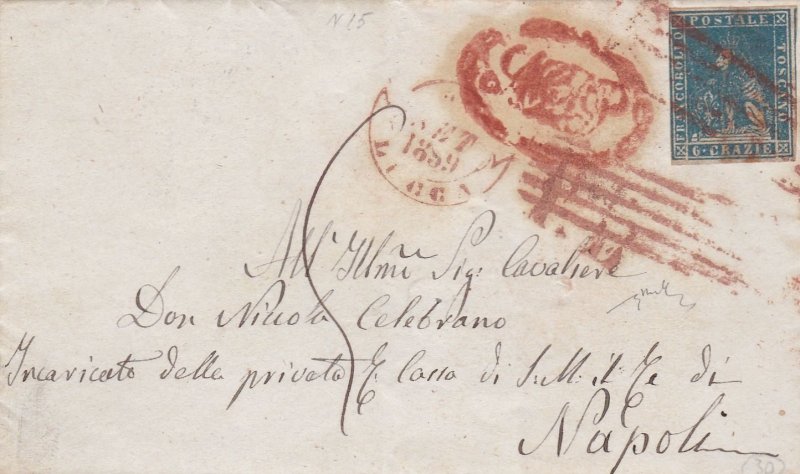 N 15
FRANCOBOLLO POSTALE TOSCANO
6 CRAZIE
SET
1859
All' Illmo Sig: Cavaliere
Don Nicola Celebrano
Incaricato della privata E. Cassa di S.M. il Re di
Napoli